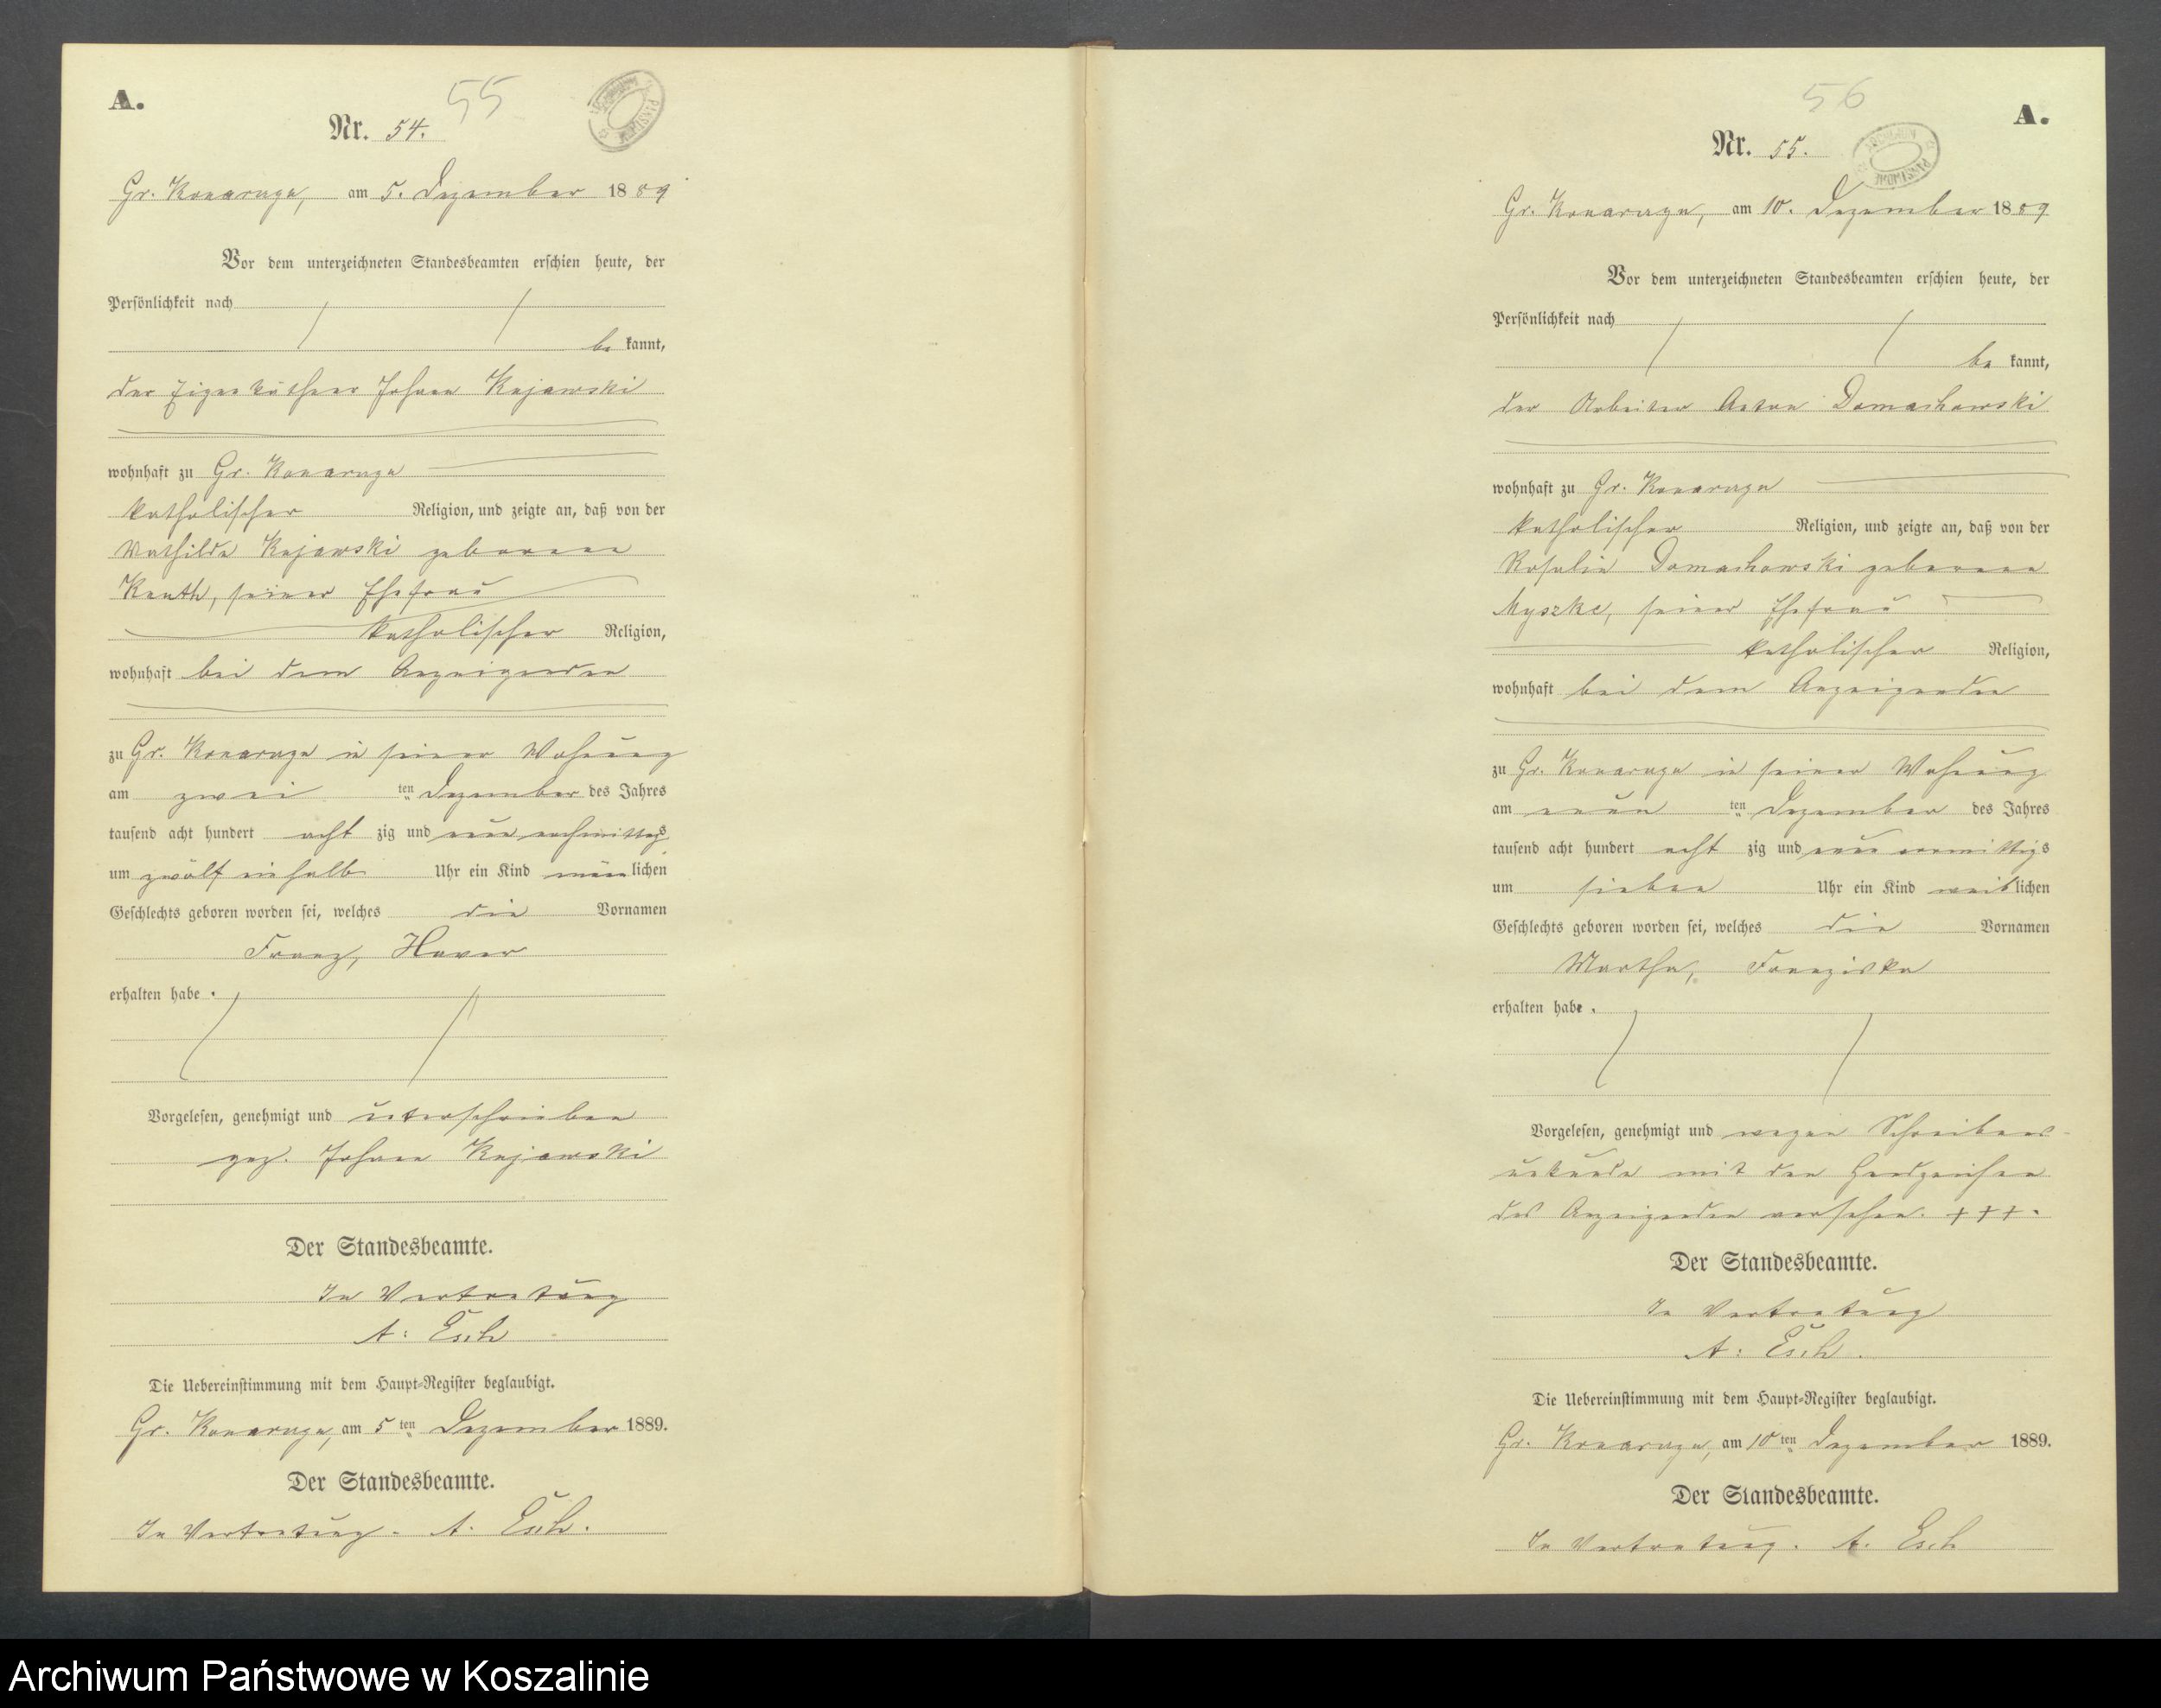 A.
55
Nr. 54.
Gr. Konarzyn, am 5. Dezember 1889
Vor dem unterzeichneten Standesbeamten erschien heute, der
Persönlichkeit nach
be kannt,
der Eigenkäthner Johann Kujawski
wohnhaft zu Gr. Konarzyn
katholischer Religion, und zeigte an, daß von der
Mathilde Kujawski geborene
seiner Ehefrau
katholischer Religion,
wohnhaft bei dem Anzeigenden
zu Gr. Konarzyn in seiner Wohnung
am zwei ten Dezember des Jahres
tausend acht hundert acht zig und neun nachmittags
um zwölf ein halb Uhr ein Kind männlichen
Geschlechts geboren worden sei, welches die Vornamen
Franz, Xaver
erhalten habe.
Vorgelesen, genehmigt und unterschrieben
gez. Johann Kujawski
Der Standesbeamte.
In Vertretung
A. Esch
Die Uebereinstimmung mit dem Haupt-Register beglaubigt.
Gr. Konarzyn, am 5 ten Dezember 1889.
Der Standesbeamte.
In Vertretung. A. Esch.
56
A.
Nr. 55.
Gr. Konarzyn, am 10. Dezember 1889
Vor dem unterzeichneten Standesbeamten erschien heute, der
Persönlichkeit nach
be kannt,
der Arbeiter Anton Domachowski
wohnhaft zu Gr. Konarzyn
katholischer Religion, und zeigte an, daß von der
Rosalie Domachowski geborene
Myszke, seiner Ehefrau
katholischer Religion,
wohnhaft bei dem Anzeigenden
zu Gr. Konarzyn in seiner Wohnung
am neun ten Dezember des Jahres
tausend acht hundert acht zig und neun vormittags
um sieben Uhr ein Kind weiblichen
Geschlechts geboren worden sei, welches die Vornamen
Martha, Franziska
erhalten habe.
Vorgelesen, genehmigt und wegen Schreibens-
unkunde mit den Handzeichen
des Anzeigenden versehen. +++.
Der Standesbeamte.
In Vertretung
A. Esch.
Die Uebereinstimmung mit dem Haupt-Register beglaubigt.
Gr. Konarzyn, am 10 ten Dezember 1889.
Der Standesbeamte.
In Vertretung. A. Esch
Archiwum Państwowe w Koszalinie